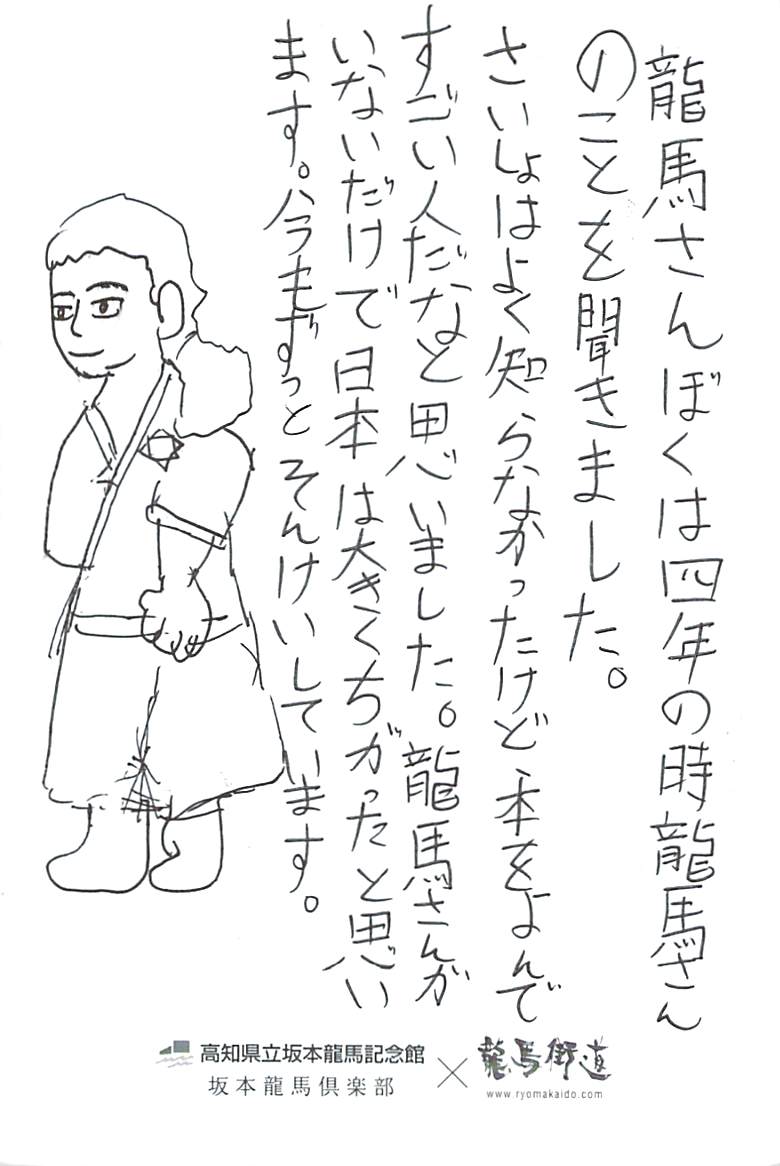 龍馬さんぼくは四年の時龍馬さん
のことを聞きました。
さいしょはよく知らなかったけど本をよんで
すごい人だなと思いました。龍馬さんが
いないだけで日本は大きくちがったと思い
ます。今もずっとそんけいしています。
高知県立坂本龍馬記念館
坂本龍馬倶楽部
×
龍馬街道
www.ryomakaido.com